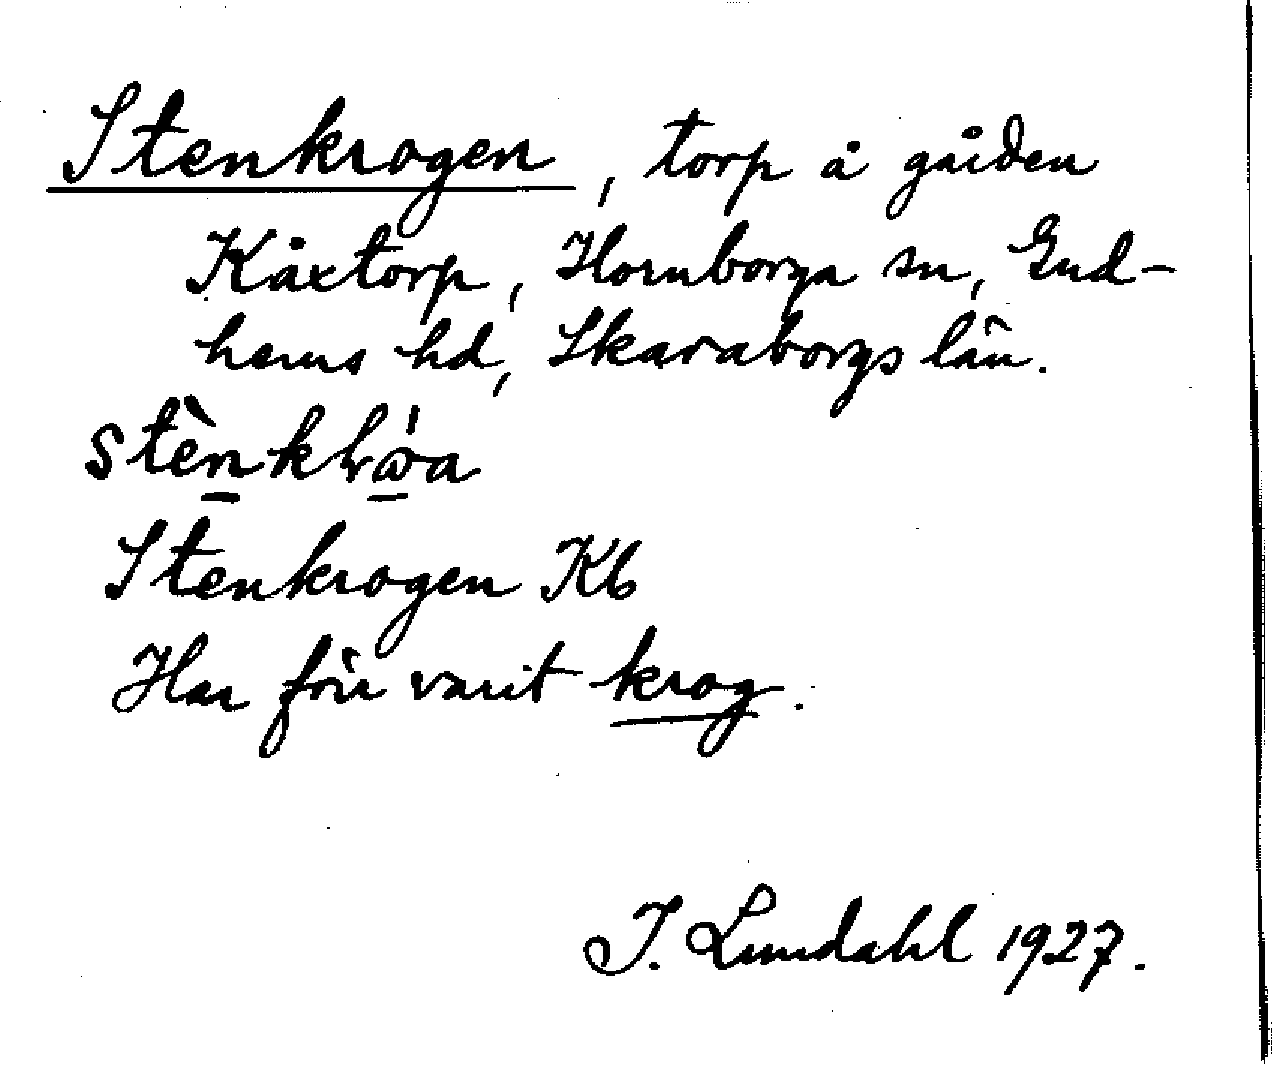 Stenkrogen, torp å gården
Kåxtorp, Hornborga sn, Gud-
hems hd, Skaraborgs län.
Stenkrogen Kb
Har förr varit krog.
I. Lundahl 1927.